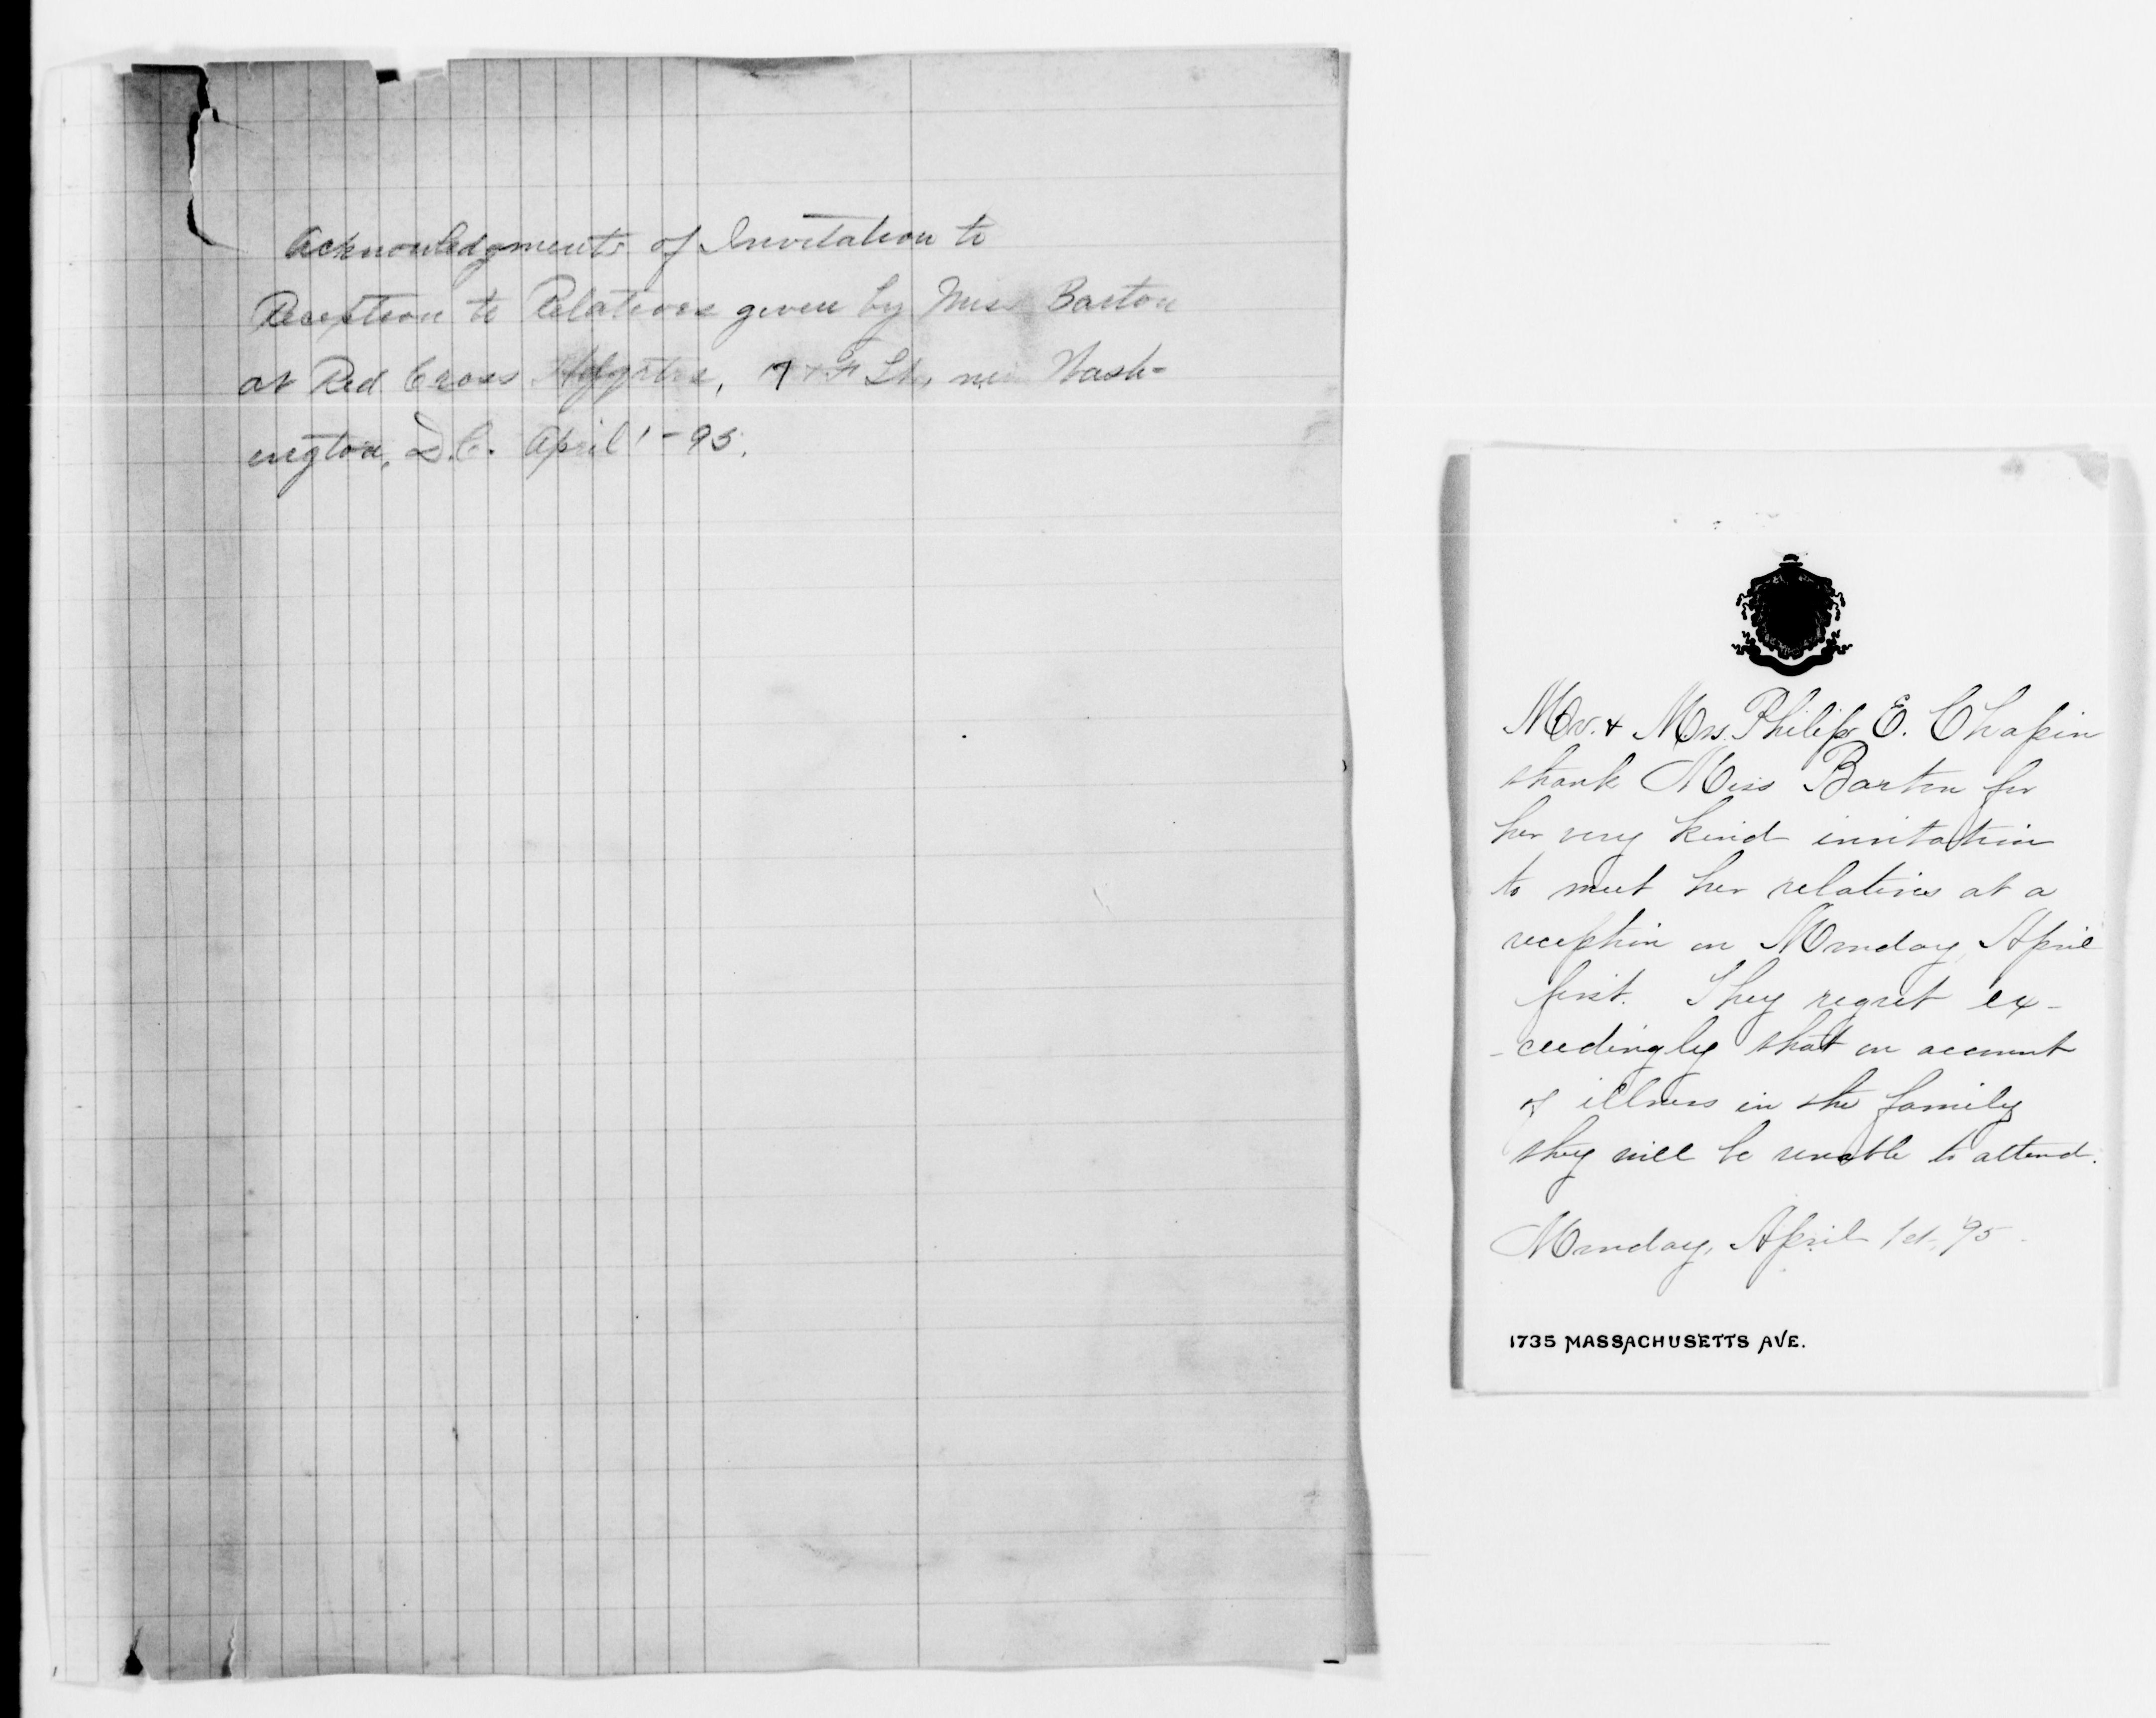 Acknowledgments of Invitation to
Reception to Relatives given by Miss Barton
at Red Cross Hdqrtrs, 17 & F Sts, Wash-
ington, D.C. April 1 - 95.
Mr. & Mrs. Philip E. Chapin
thank Miss Barton for
her very kind invitation
to meet her relatives at a
reception on Monday, April
first. They regret ex-
-ceedingly that on account
of illness in the family
they will be unable to attend.
Monday, April 1st, '95.
1735 MASSACHUSETTS AVE.